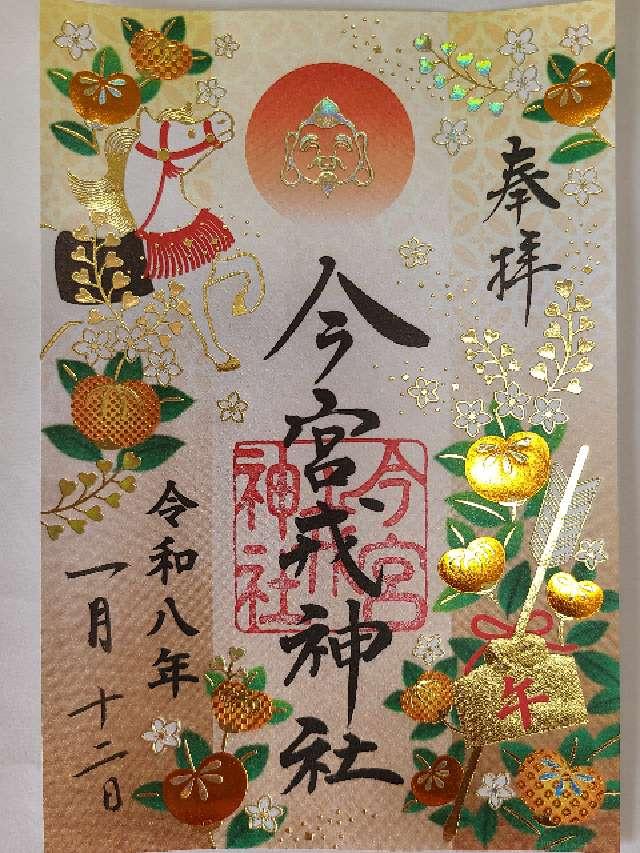 奉拝
今宮戎神社
今宮戎神社
令和八年
一月十二日
午